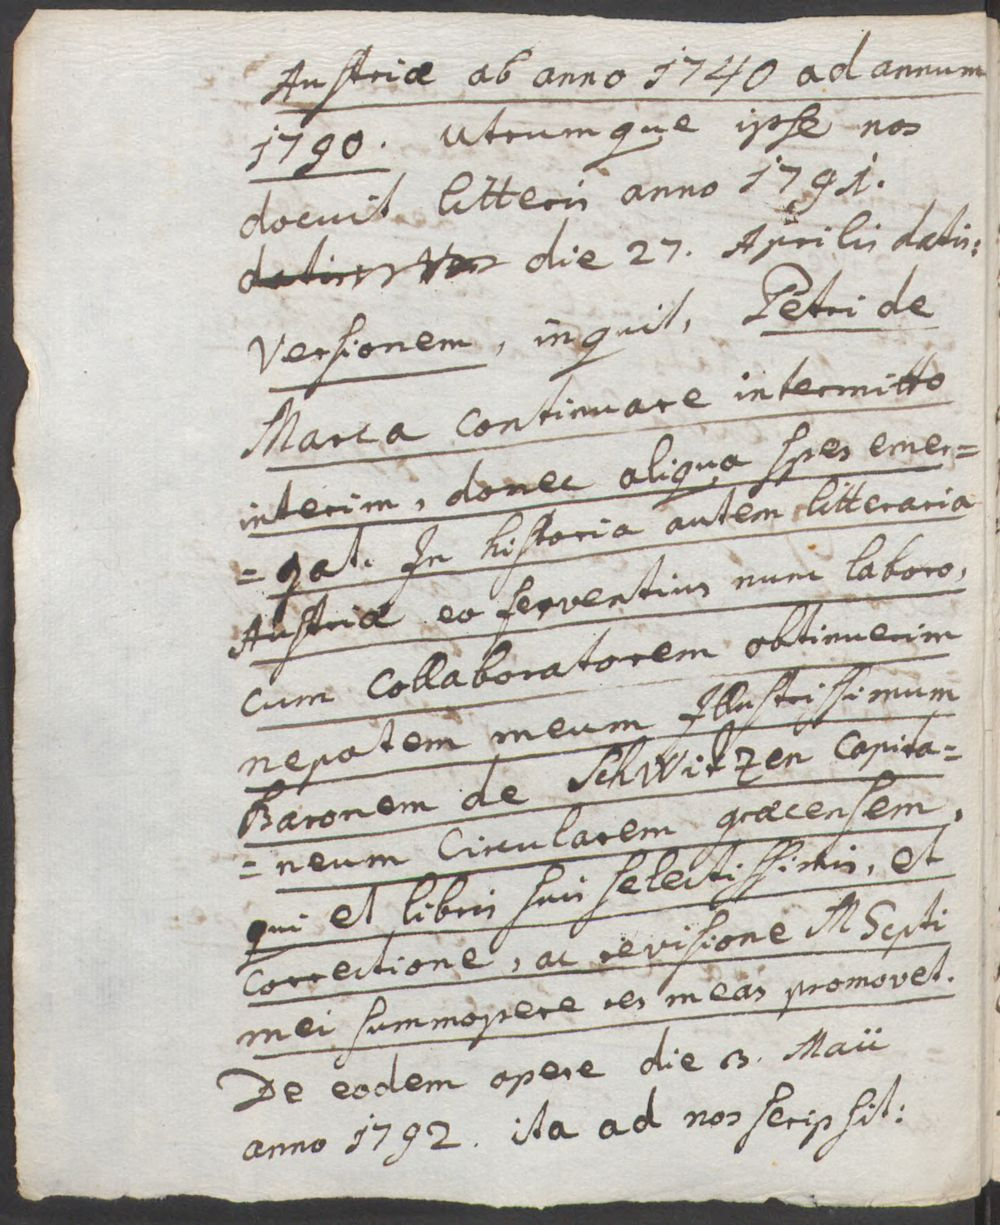 Austriæ ab anno 1740 ad annum
1790. Utrumque ipse nos
docuit litteris anno 1791.
die 27. Aprilis datis:
Versionem, inquit, Petri de
Marca continuare intermitto
interim, donec aliqua spes emer=
=gat. In historia autem litteraria
Austriæ eo ferventius nunc laboro,
cum collaboratorem obtinuerim
nepotem meum Illustrissimum
Baronem de Schwitzen Capita=
=neum Circularem græcensem,
qui et libris suis selectissimis, et
correctione, ac revisione MScpti
mei summopere res meas promovet.
De eodem opere die 3. Maii
anno 1792. ita ad nos scripsit: